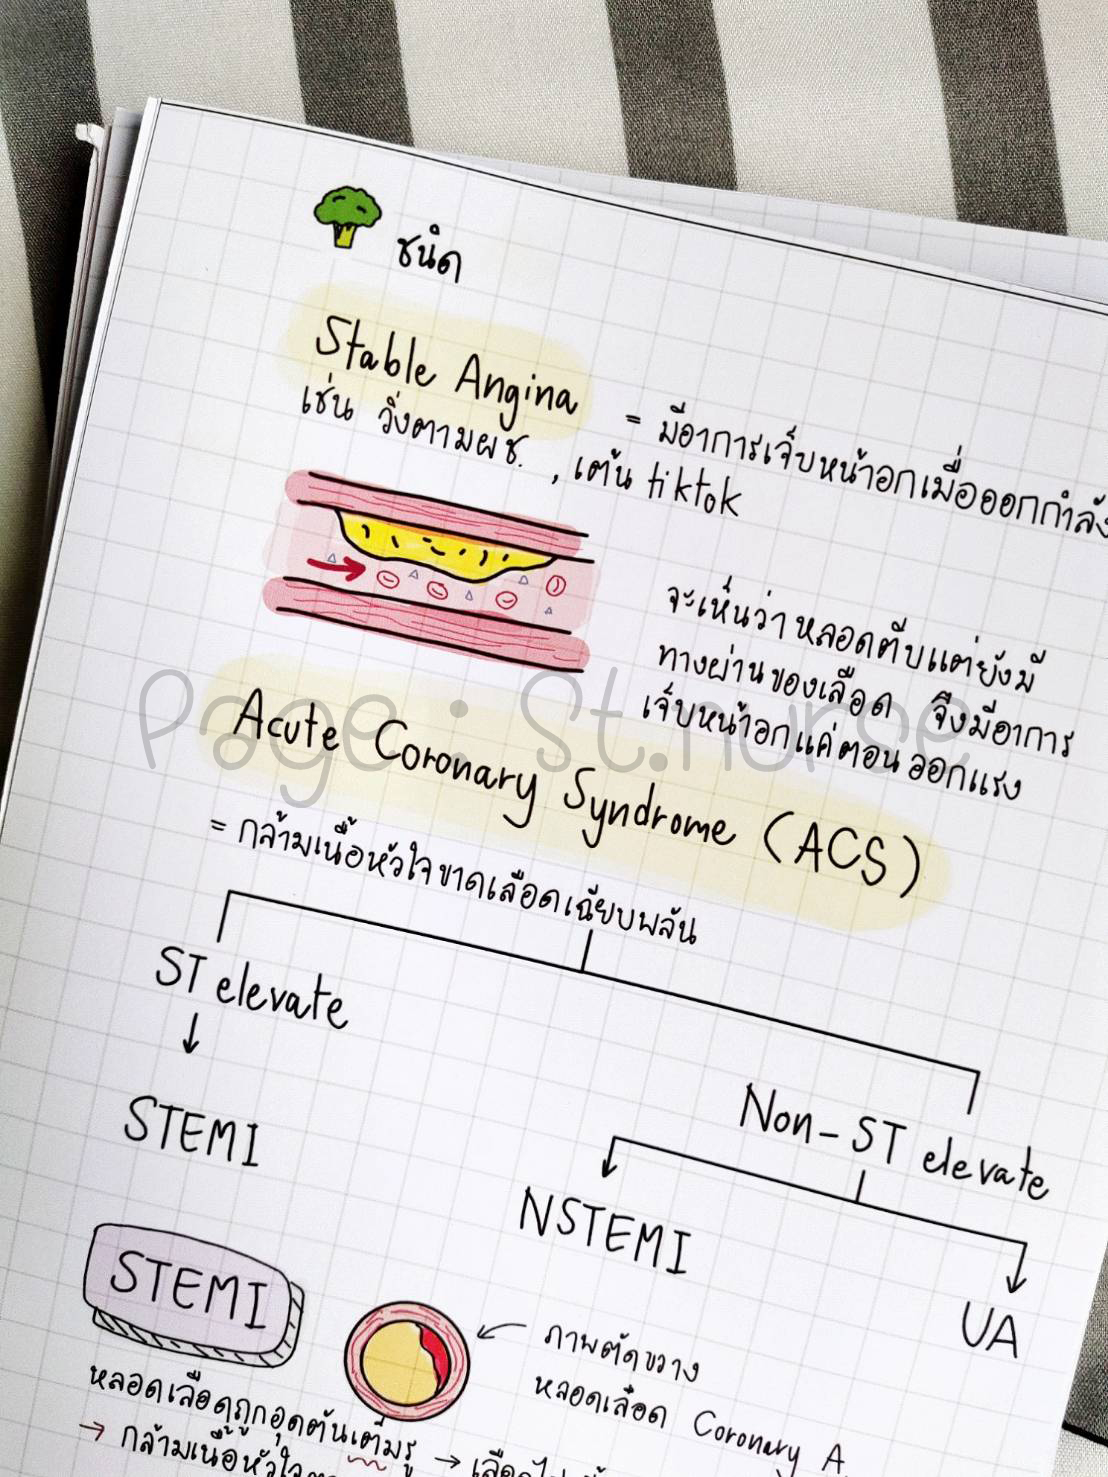 ชนิด
Stable Angina
= มีอาการเจ็บหน้าอกเมื่อออกกำลัง
เช่น วิ่งตามผช. , เต้น tiktok
จะเห็นว่าหลอดตีบแต่ยังมี
ทางผ่านของเลือด จึงมีอาการ
เจ็บหน้าอกแค่ตอนออกแรง
Page : St.nurse
Acute Coronary Syndrome (ACS)
= กล้ามเนื้อหัวใจขาดเลือดเฉียบพลัน
ST elevate
Non-ST elevate
STEMI
NSTEMI
UA
STEMI
ภาพตัดขวาง
หลอดเลือด Coronary A.
หลอดเลือดถูกอุดตันเต็มรู
→ กล้ามเนื้อหัวใจ
→ เลือด